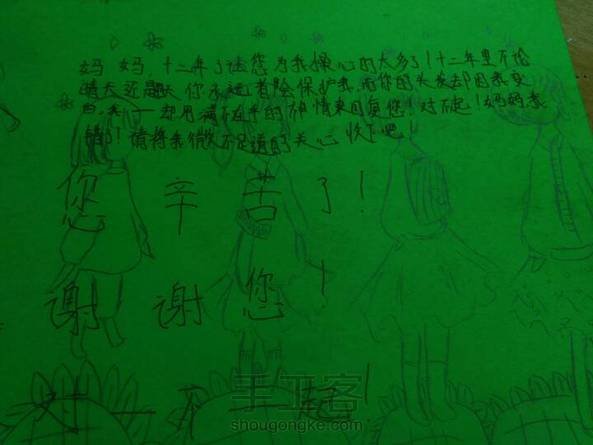 妈妈,十二年了让您为我操心的太多了!十二年里不论
晴天还是雨天你永远冒险保护我,而你的头发却因我变
白,我一却用满不在乎的神情来回复您,对不起!妈妈我
错了!请将我微不足道的关心收下吧
您辛苦了!
谢谢您!
对不起!
手工客
shougongke.com